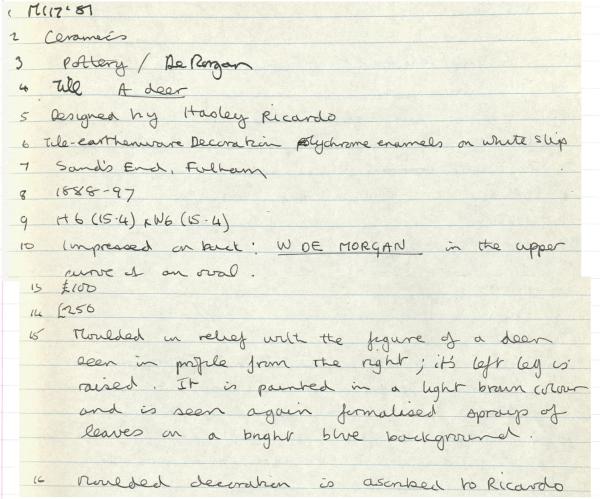 1 M117'81
2 Ceramics
3 Pottery / De Morgan
4 Tile A deer
5 Designed by Hasley Ricardo
6 Tile-earthenware Decoration Polychrome enamels on white slip
7 Sand's End, Fulham
8 1888-97
9 H 6 (15.4) x W6 (15.4)
10 Impressed on back: W DE MORGAN in the upper
curve of an oval.
13 £100
14 £250
15 Moulded in relief with the figure of a deer
seen in profile from the right; it's left leg is
raised. It is painted in a light brown colour
and is seen again formalised sprays of
leaves on a bright blue background.
16 Moulded decoration is ascribed to Ricardo